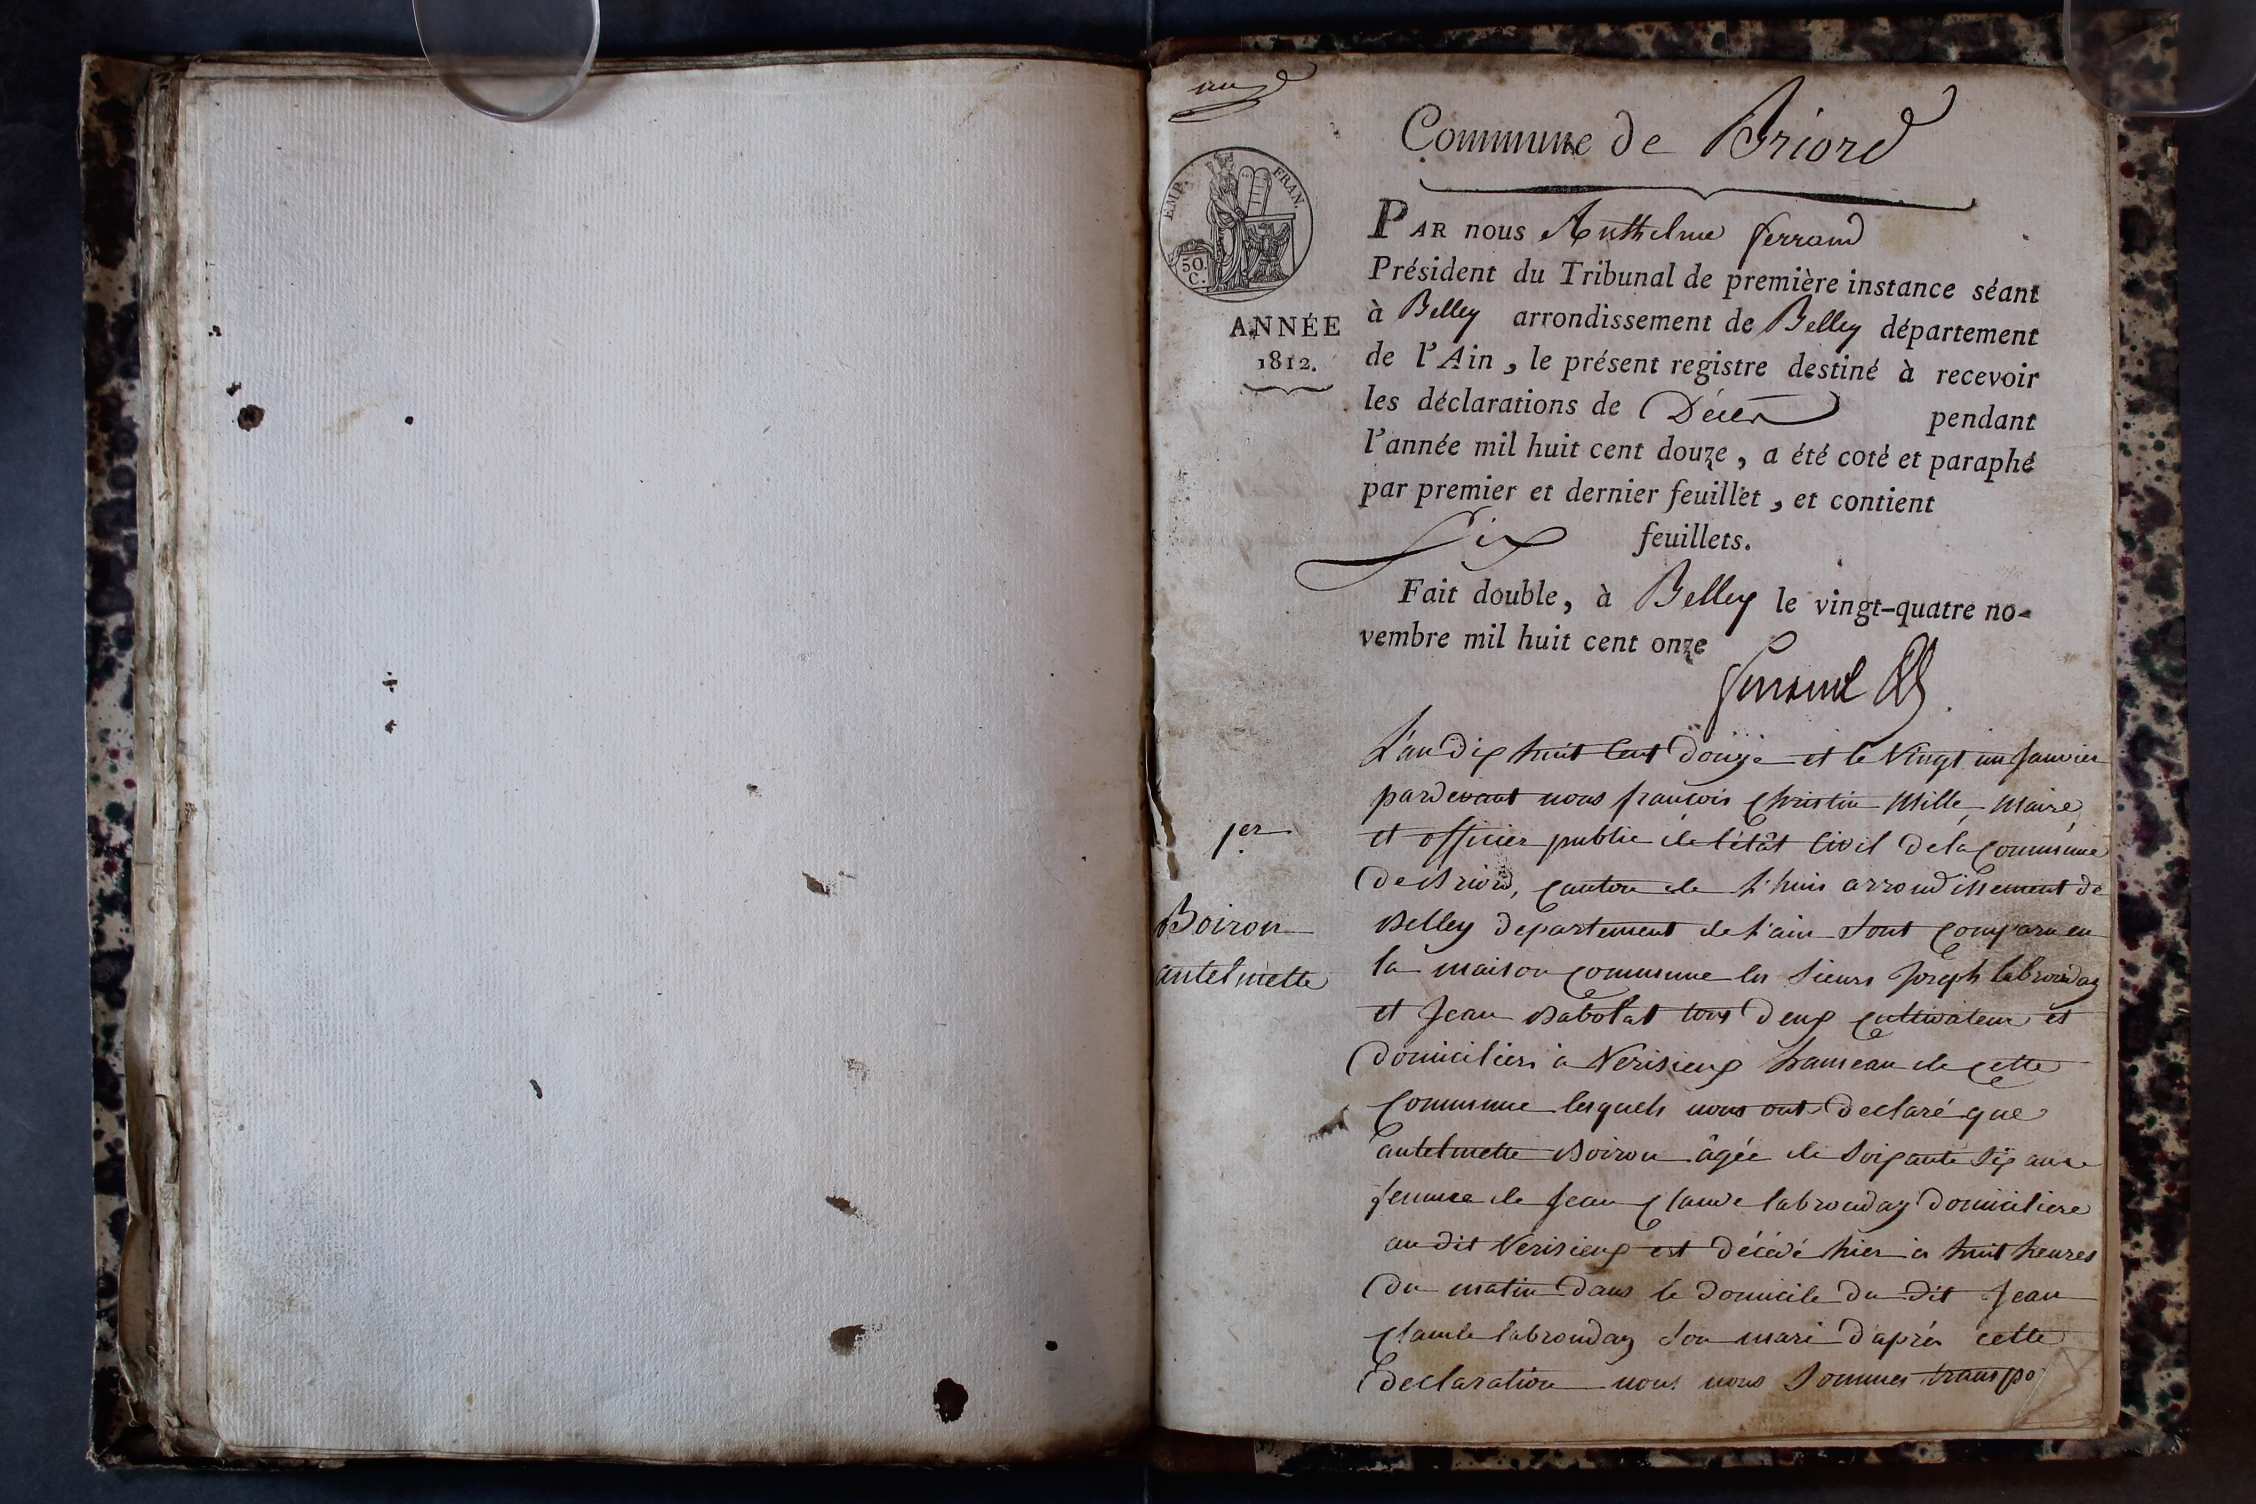 Commune de Briord
EMP. FRAN.
50.
C.
ANNÉE
1812.
PAR nous Anthelme ferrand
Président du Tribunal de première instance séant
à Belley arrondissement de Belley département
de l'Ain, le présent registre destiné à recevoir
les déclarations de Décès pendant
l'année mil huit cent douze, a été coté et paraphé
par premier et dernier feuillet, et contient
Six feuillets.
Fait double, à Belley le vingt-quatre no-
vembre mil huit cent onze
ferrand
1er
Boiron
antelmette
L'an dix huit cent douze et le vingt un janvier
pardevant nous françois Christin Mille, Maire,
et officier public de l'étât civil de la Commune
de Briord, canton de l'huis arrondissement de
Belley departement de l'ain sont comparu en
la maison commune les sieurs Joseph labrouday
et Jean Babolat tous deux cultivateur et
domiciliers à Verisieux hameau de cette
Commune lesquels nous ont declaré que
antelmette Boiron âgée de soixante six ans
femme de Jean Claude labrouday domiciliere
au dit Verisieux est décédé hier à huit heures
du matin dans le domicile du dit Jean
Claude labrouday son mari d'après cette
declaration nous nous sommes transpo